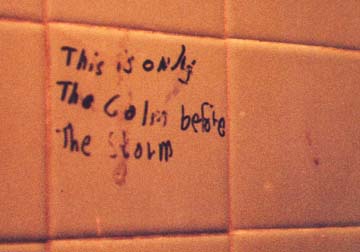 This is only
The Calm before
The Storm